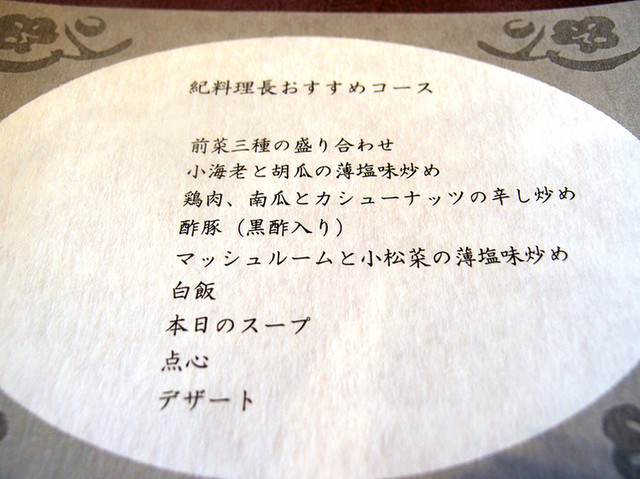 紀料理長おすすめコース
前菜三種の盛り合わせ
小海老と胡瓜の薄塩味炒め
鶏肉、南瓜とカシューナッツの辛し炒め
酢豚（黒酢入り）
マッシュルームと小松菜の薄塩味炒め
白飯
本日のスープ
点心
デザート